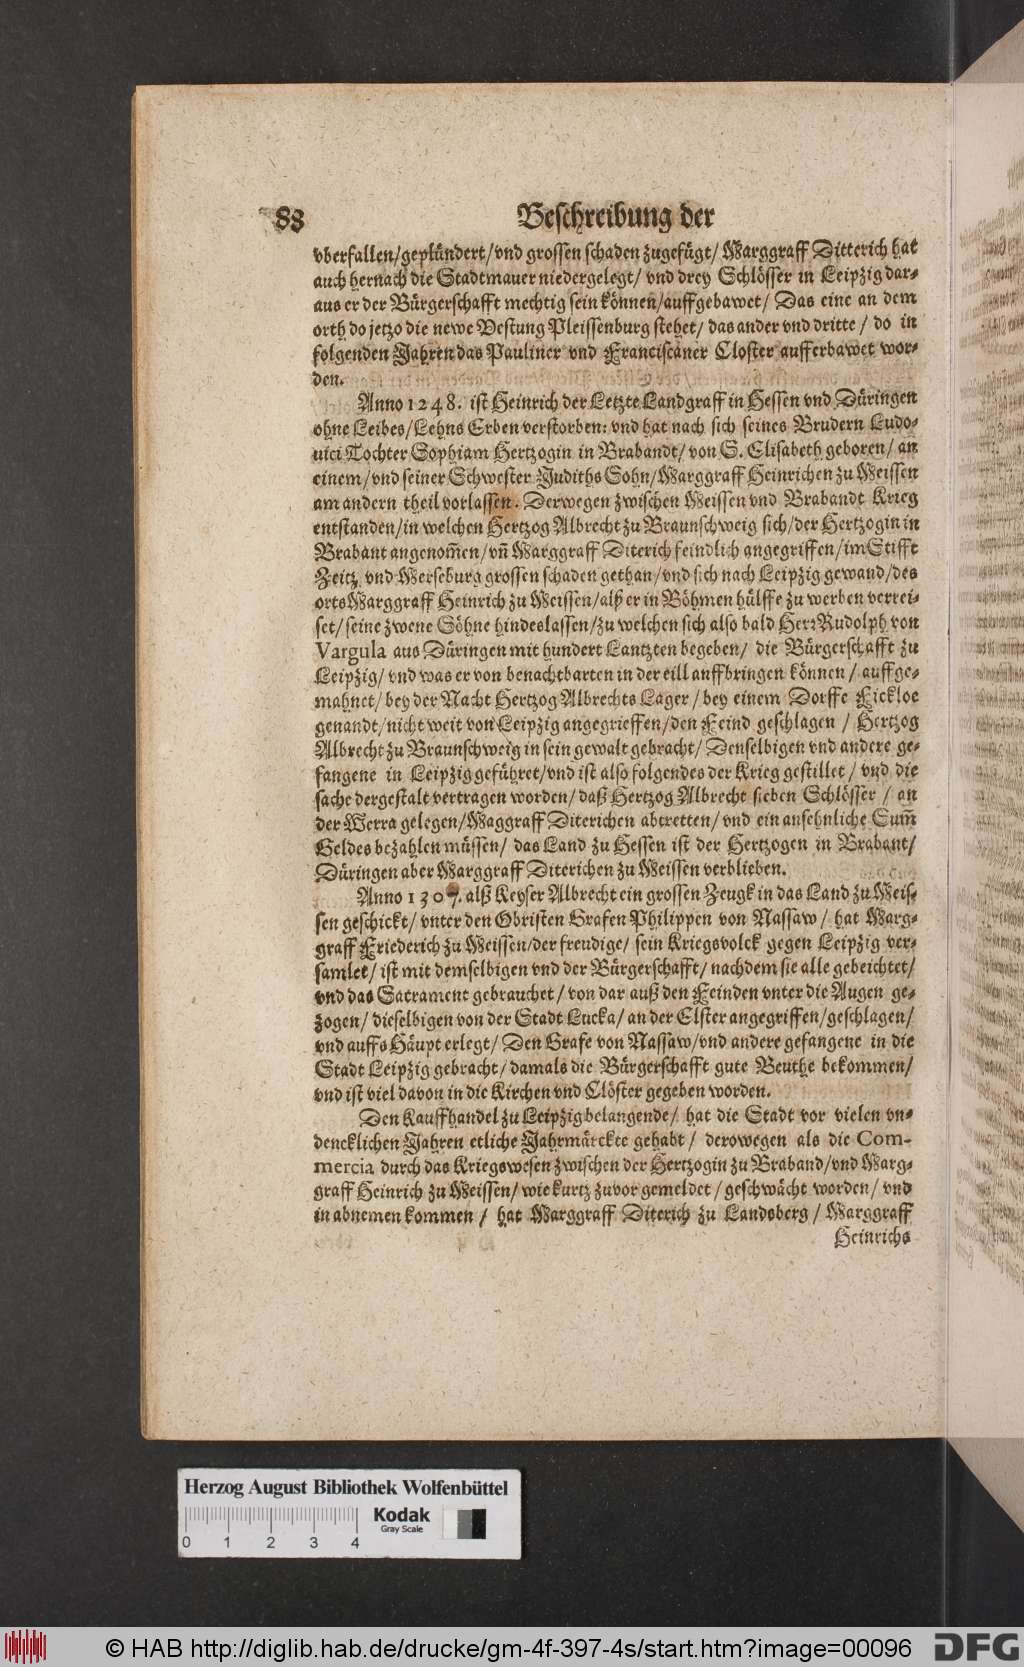 88 Beschreibung der
vberfallen/geplündert/vnd grossen schaden zugefügt/ Marggraff Ditterich hat
auch hernach die Stadtmauer niedergelegt/ vnd drey Schlösser in Leipzig dar-
aus er der Bürgerschafft mechtig sein können/auffgebawet/ Das eine an dem
orth do jetzo die newe Vestung Pleissenburg stehet/ das ander vnd dritte / do in
folgenden Jahren das Pauliner vnd Franciscaner Closter aufferbawet wor-
den.
Anno 1248. ist Heinrich der Letzte Landgraff in Hessen vnd Düringen
ohne Leibes/Lehns Erben verstorben: vnd hat nach sich seines Brudern Ludo-
uici Tochter Sophiam Hertzogin in Brabandt/ von S. Elisabeth geboren/ an
einem/vnd seiner Schwester Judiths Sohn/Marggraff Heinrichen zu Meissen
am andern theil vorlassen. Derwegen zwischen Meissen vnd Brabandt Krieg
entstanden/in welchen Hertzog Albrecht zu Braunschweig sich/der Hertzogin in
Brabant angenom̃en/vñ Marggraff Diterich feindlich angegriffen/im Stifft
Zeitz vnd Merseburg grossen schaden gethan/vnd sich nach Leipzig gewand/des
orts Marggraff Heinrich zu Meissen/alß er in Böhmen hülffe zu werben verrei-
set/seine zwene Söhne hindeslassen/zu welchen sich also bald Herr Rudolph von
Vargula aus Düringen mit hundert Lantzten begeben/ die Bürgerschafft zu
Leipzig/ vnd was er von benachtbarten in der eill auffbringen können / auffge-
mahnet/ bey der Nacht Hertzog Albrechts Lager / bey einem Dorffe Eickloe
genandt/nicht weit von Leipzig angegrieffen/den Feind geschlagen / Hertzog
Albrecht zu Braunschweig in sein gewalt gebracht/ Denselbigen vnd andere ge-
fangene in Leipzig geführet/vnd ist also folgendes der Krieg gestillet / vnd die
sache dergestalt vertragen worden/ daß Hertzog Albrecht sieben Schlösser / an
der Werra gelegen/Maggraff Diterichen abtretten/ vnd ein ansehnliche Sum̃
Geldes bezahlen müssen/ das Land zu Hessen ist der Hertzogen in Brabant/
Düringen aber Marggraff Diterichen zu Meissen verblieben.
Anno 1307. alß Keyser Albrecht ein grossen Zeugk in das Land zu Meis-
sen geschickt/ vnter den Obristen Grafen Philippen von Nassaw/ hat Marg-
graff Friederich zu Meissen/der freudige/ sein Kriegsvolck gegen Leipzig ver-
samlet/ ist mit demselbigen vnd der Bürgerschafft/ nachdem sie alle gebeichtet/
vnd das Sacrament gebrauchet/ von dar auß den Feinden vnter die Augen ge-
zogen/ dieselbigen von der Stadt Lucka/ an der Elster angegriffen/geschlagen/
vnd auffs Häupt erlegt/ Den Grafe von Nassaw/vnd andere gefangene in die
Stadt Leipzig gebracht/ damals die Bürgerschafft gute Beuthe bekommen/
vnd ist viel davon in die Kirchen vnd Clöster gegeben worden.
Den Kauffhandel zu Leipzig belangende/ hat die Stadt vor vielen vn-
dencklichen Jahren etliche Jahrmärckte gehabt/ derowegen als die Com-
mercia durch das Kriegswesen zwischen der Hertzogin zu Braband/vnd Marg-
graff Heinrich zu Meissen/ wie kurtz zuvor gemeldet/ geschwächt worden/ vnd
in abnemen kommen / hat Marggraff Diterich zu Landsberg / Marggraff
Heinrichs
Herzog August Bibliothek Wolfenbüttel
Kodak
Gray Scale
0 1 2 3 4
© HAB http://diglib.hab.de/drucke/gm-4f-397-4s/start.htm?image=00096
DFG